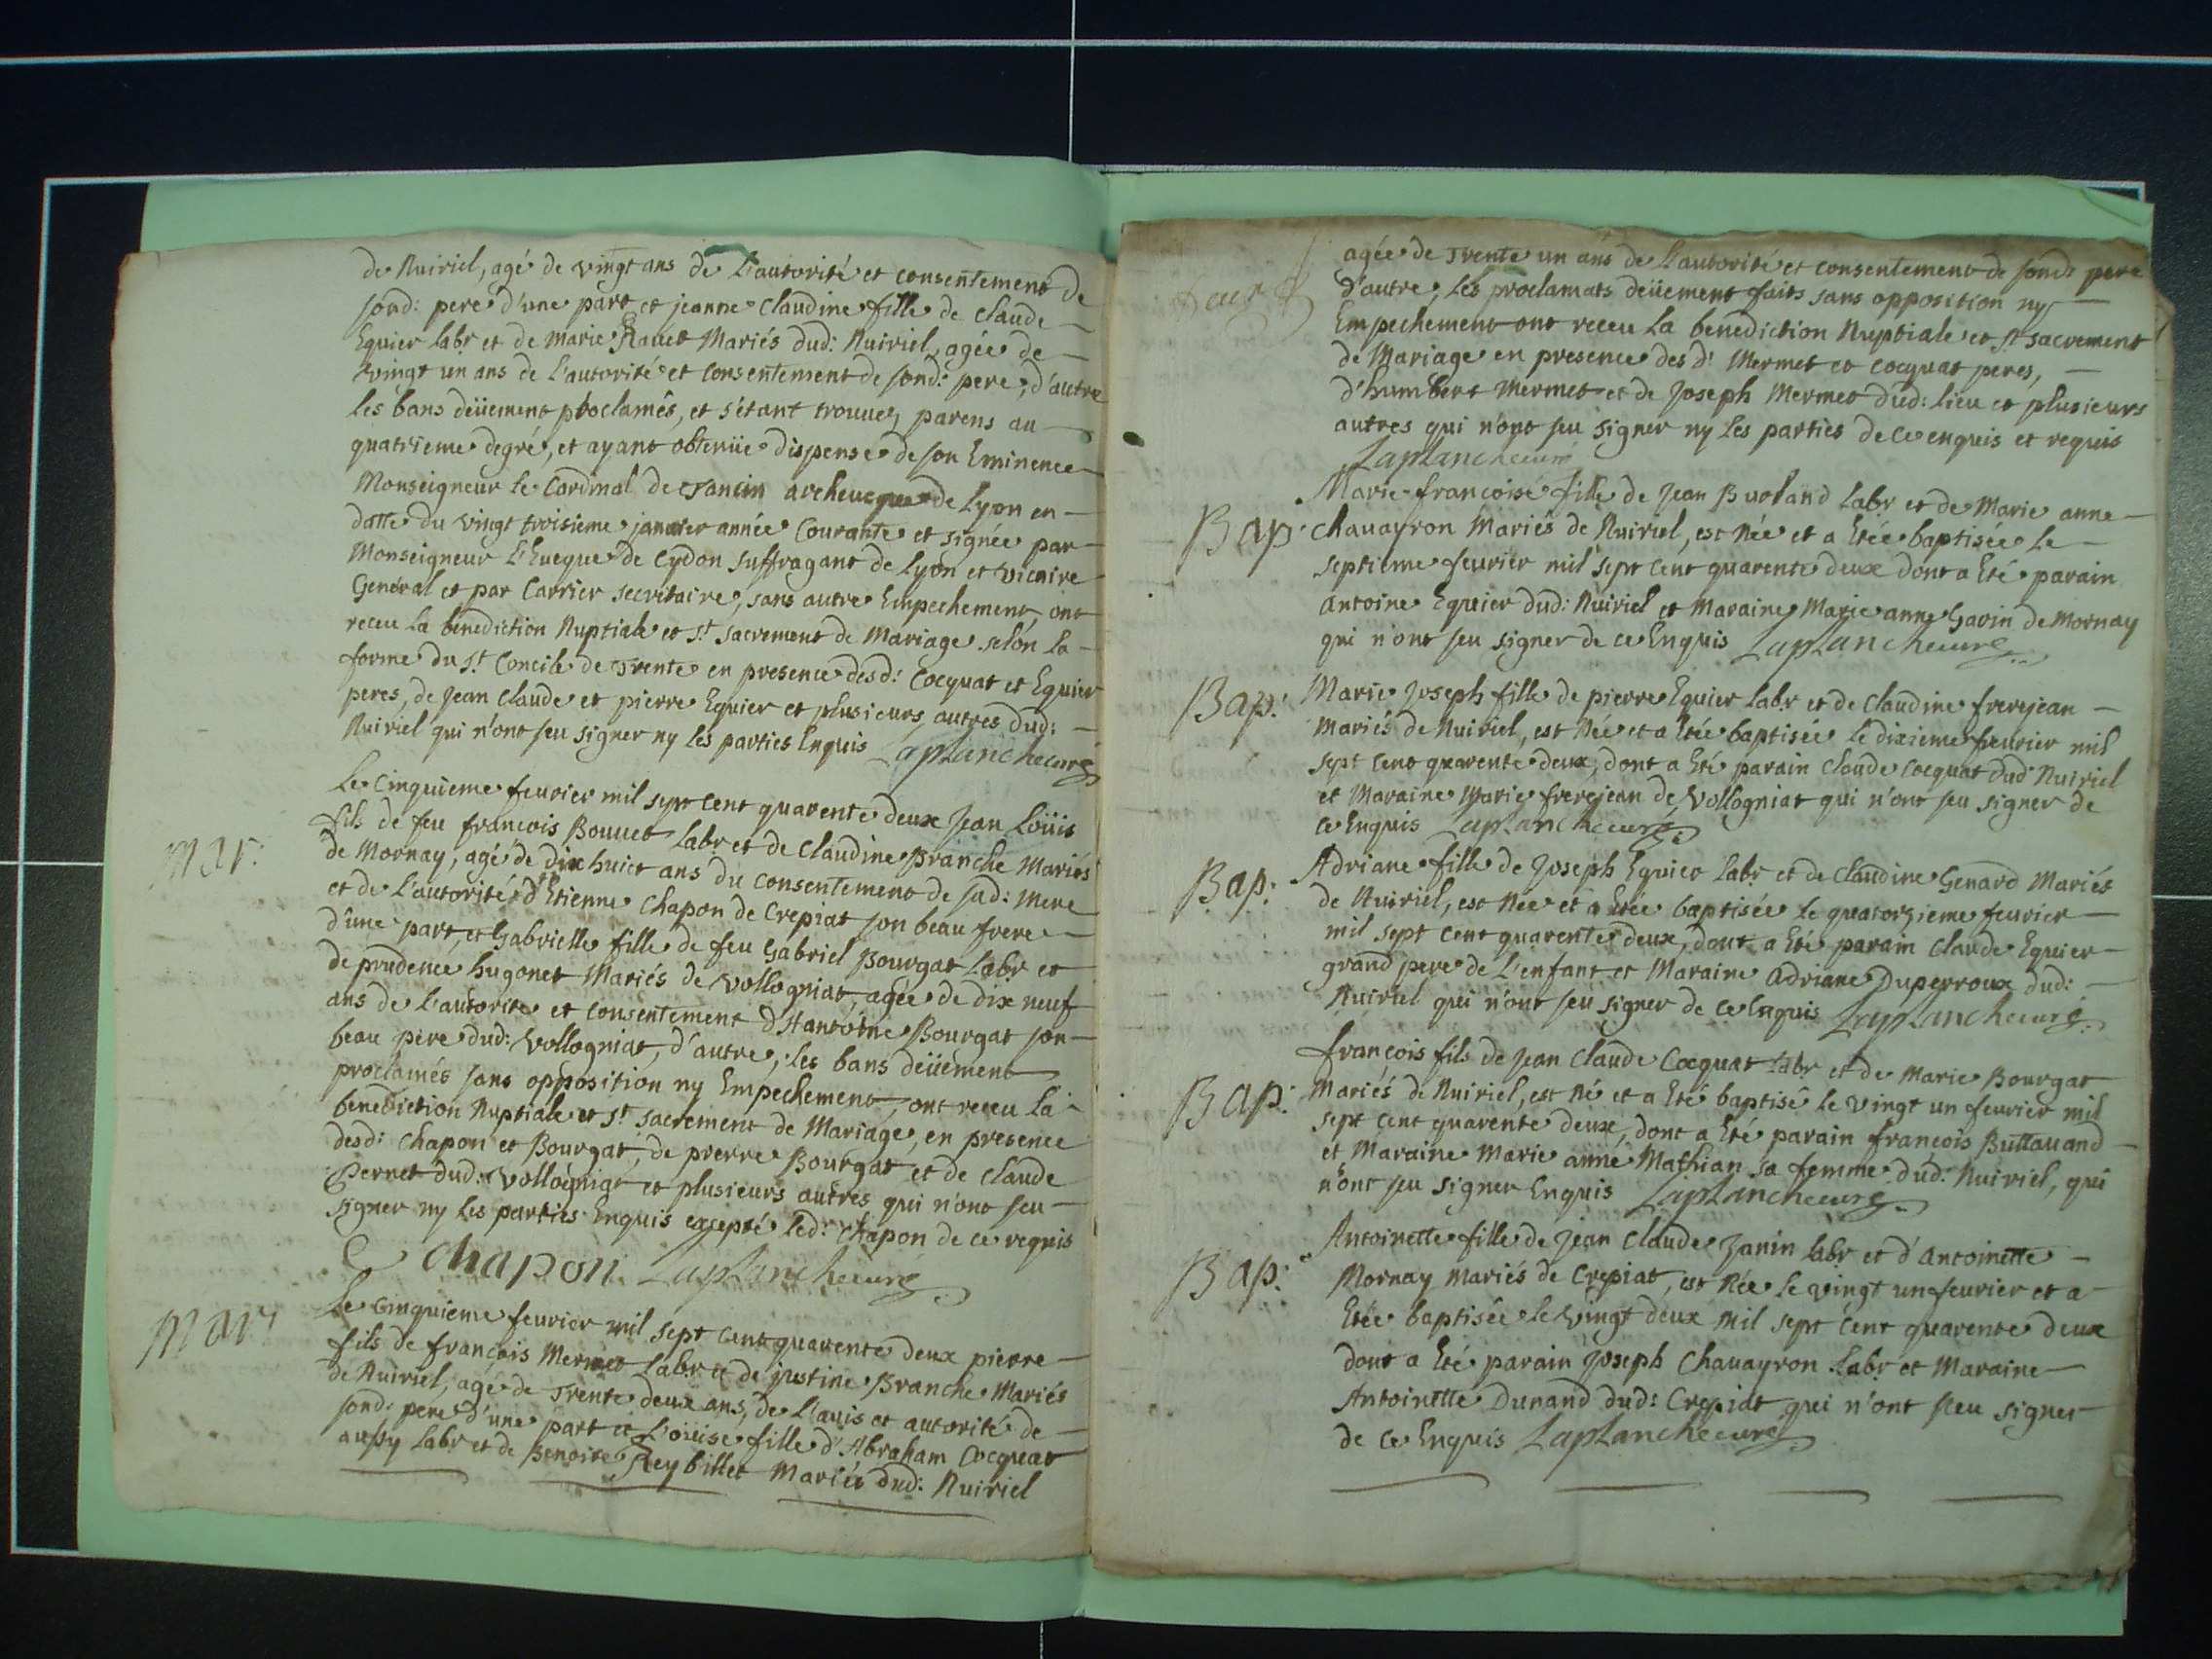 de Nuiriel, agé de vingt ans de L'autorité et consentement de
sond: pere d'une part et jeanne Claudine fille de Claude
Equier labr et de marie Ravet Mariés dud: Nuiriel, agée de
vingt un ans de l'autorité et consentement de sond: pere, d'autre
les bans deüement proclamés, et s'étant trouvez parens au
quatrieme degré, et ayant obtenüe dispense de son Eminence
Monseigneur le Cardinal de Tancin archeueque de Lyon en
datte du vingt troisieme januier année Courante et signée par
Monseigneur L'Eueque de Cydon suffragant de Lyon et vicaire
General et par Carrier secretaire, sans autre Empechement, ont
receu la benediction Nuptiale et St sacrement de Mariage selon la
forme du St Concile de Trente en presence desd: Cocquat et Equier
peres, de Jean Claude et pierre Equier et plusieurs, autres dud:
Nuiriel qui n'ont seu signer ny les parties Enquis Laplanche curé
Mar:
Le Cinquieme feurier mil sept cent quarente deux Jean Loüis
fils de feu francois Bouuet labr et de Claudine Branche Mariés
de Mornay, agé de dix huict ans du consentement de sad: Mere
et de L'autorité d'Etienne Chapon de Crepiat son beau frere
d'une part, et Gabrielle fille de feu Gabriel Bourgat Labr et
de prudence hugonet Mariés de Vollogniat, agée de dix neuf
ans de l'autorite et consentement d'Hantoine Bourgat son
beau pere dud: Vollogniat, d'autre, les bans deüement
proclamés sans opposition ny Empechement, ont receu la
benediction Nuptiale et St sacrement de Mariage, en presence
desd: Chapon et Bourgat, de pierre Bourgat et de Claude
Pernet dud: Vollogniat et plusieurs autres qui n'ont seu
signer ny les parties Enquis excepté led: Chapon de ce requis
E Chapon Laplanche curé
Mar:
Le Cinquieme feurier mil sept cent quarente deux pierre
fils de francois Mermet Labr et de justine Branche Mariés
de Nuiriel, agé de Trente deux ans, de L'auis et autorité de
sond: pere d'une part et L'oüise fille d'Abraham Cocquat
aussy labr et de Benoite Reybillet Mariés dud: Nuiriel
agée de Trente un ans de L'autorité et consentement de sond: pere
d'autre, les proclamats deüement faits sans opposition ny
Empechement ont receu la benediction Nuptiale et St sacrement
de Mariage en presence des d: Mermet et Cocquat peres,
d'humbert Mermet et de Joseph Mermet dud: lieu et plusieurs
autres qui n'ont seu signer ny les parties de ce enquis et requis
Laplanche curé
Bap:
Marie francoise fille de Jean Buoland Labr et de Marie anne
Chauayron Mariés de Nuiriel, est Née et a Etée baptisée Le
septieme feurier mil sept cent quarente deux dont a Eté parain
antoine Equier dud: Nuiriel et Maraine Marie anne Gavin de Mornay
qui n'ont seu signer de ce Enquis Laplanche curé
Bap:
Marie Joseph fille de pierre Equier labr et de Claudine frerejean
Mariés de Nuiriel, est Née et a Etée baptisée le dixieme feurier mil
sept cent quarente deux, dont a Eté parain Claude Cocquat dud Nuiriel
et Maraine Marie frerejean de Vollogniat qui n'ont seu signer de
ce Enquis Laplanche curé
Bap:
Adriane fille de Joseph Equier labr et de Claudine Genard Mariés
de Nuiriel, est Née et a Etée baptisée le quatorzieme feurier
mil sept cent quarente deux, dont a Eté parain Claude Equier
grand pere de L'enfant et Maraine Adriane Duperroux dud:
Nuiriel qui n'ont seu signer de ce Enquis Laplanche curé
Bap:
françois fils de Jean Claude Cocquat Labr et de Marie Bourgat
Mariés de Nuiriel, est Né et a Eté baptisé le vingt un feurier mil
sept cent quarente deux, dont a Eté parain françois Buttauand
et Maraine Marie anne Mathian sa femme dud: Nuiriel, qui
n'ont seu signer Enquis Laplanche curé
Bap:
Antoinette fille de Jean Claude Zanin labr et d'Antoinette
Mornay mariés de Crepiat, est Née le vingt un feurier et a
Etée baptisée le vingt deux mil sept cent quarente deux
dont a Eté parain Joseph Chauayron Labr et Maraine
Antoinette Dunand dud: Crepiat qui n'ont seu signer
de ce Enquis Laplanche curé